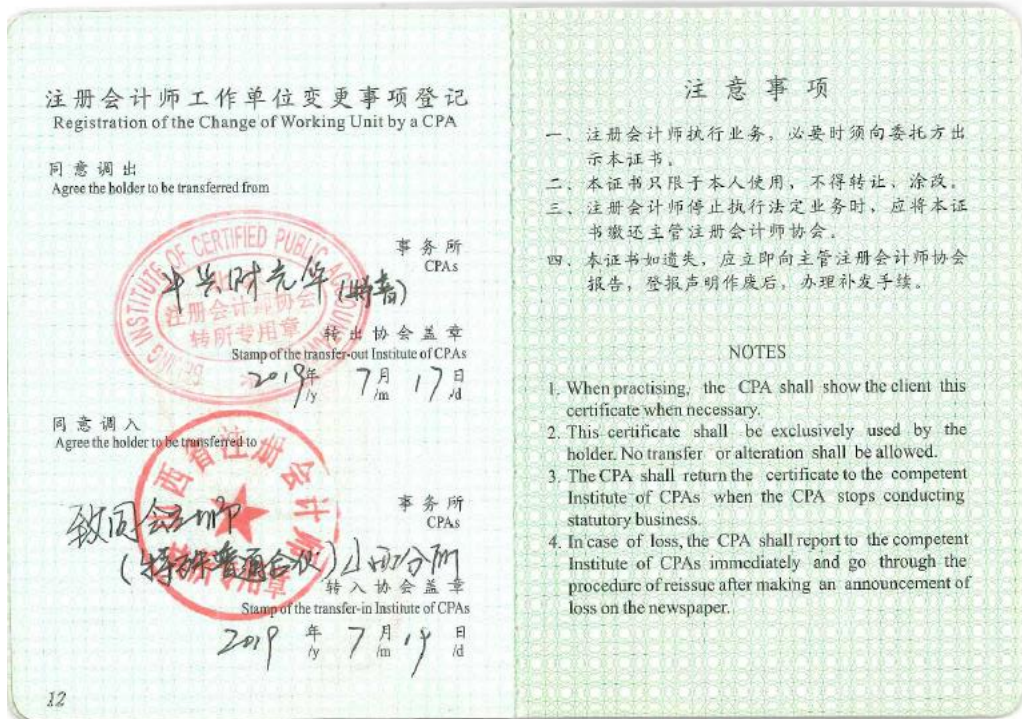 注册会计师工作单位变更事项登记
Registration of the Change of Working Unit by a CPA
同意调出
Agree the holder to be transferred from
事务所
CPAs
中兴财光华(特普)
INSTITUTE OF CERTIFIED PUBLIC ACCOUNTANTS
注册会计师协会
转所专用章
转出协会盖章
Stamp of the transfer-out Institute of CPAs
2019年 7月 17日
/y /m /d
同意调入
Agree the holder to be transferred to
西省注册会计师
事务所
CPAs
致同会计师
(特殊普通合伙)山西分所
转所专用章
转入协会盖章
Stamp of the transfer-in Institute of CPAs
2019 年 7 月 日
/y /m /d
12
注意事项
一、注册会计师执行业务，必要时须向委托方出
示本证书。
二、本证书只限于本人使用，不得转让、涂改。
三、注册会计师停止执行法定业务时，应将本证
书缴还主管注册会计师协会。
四、本证书如遗失，应立即向主管注册会计师协会
报告，登报声明作废后，办理补发手续。
NOTES
1. When practising, the CPA shall show the client this
certificate when necessary.
2. This certificate shall be exclusively used by the
holder. No transfer or alteration shall be allowed.
3. The CPA shall return the certificate to the competent
Institute of CPAs when the CPA stops conducting
statutory business.
4. In case of loss, the CPA shall report to the competent
Institute of CPAs immediately and go through the
procedure of reissue after making an announcement of
loss on the newspaper.